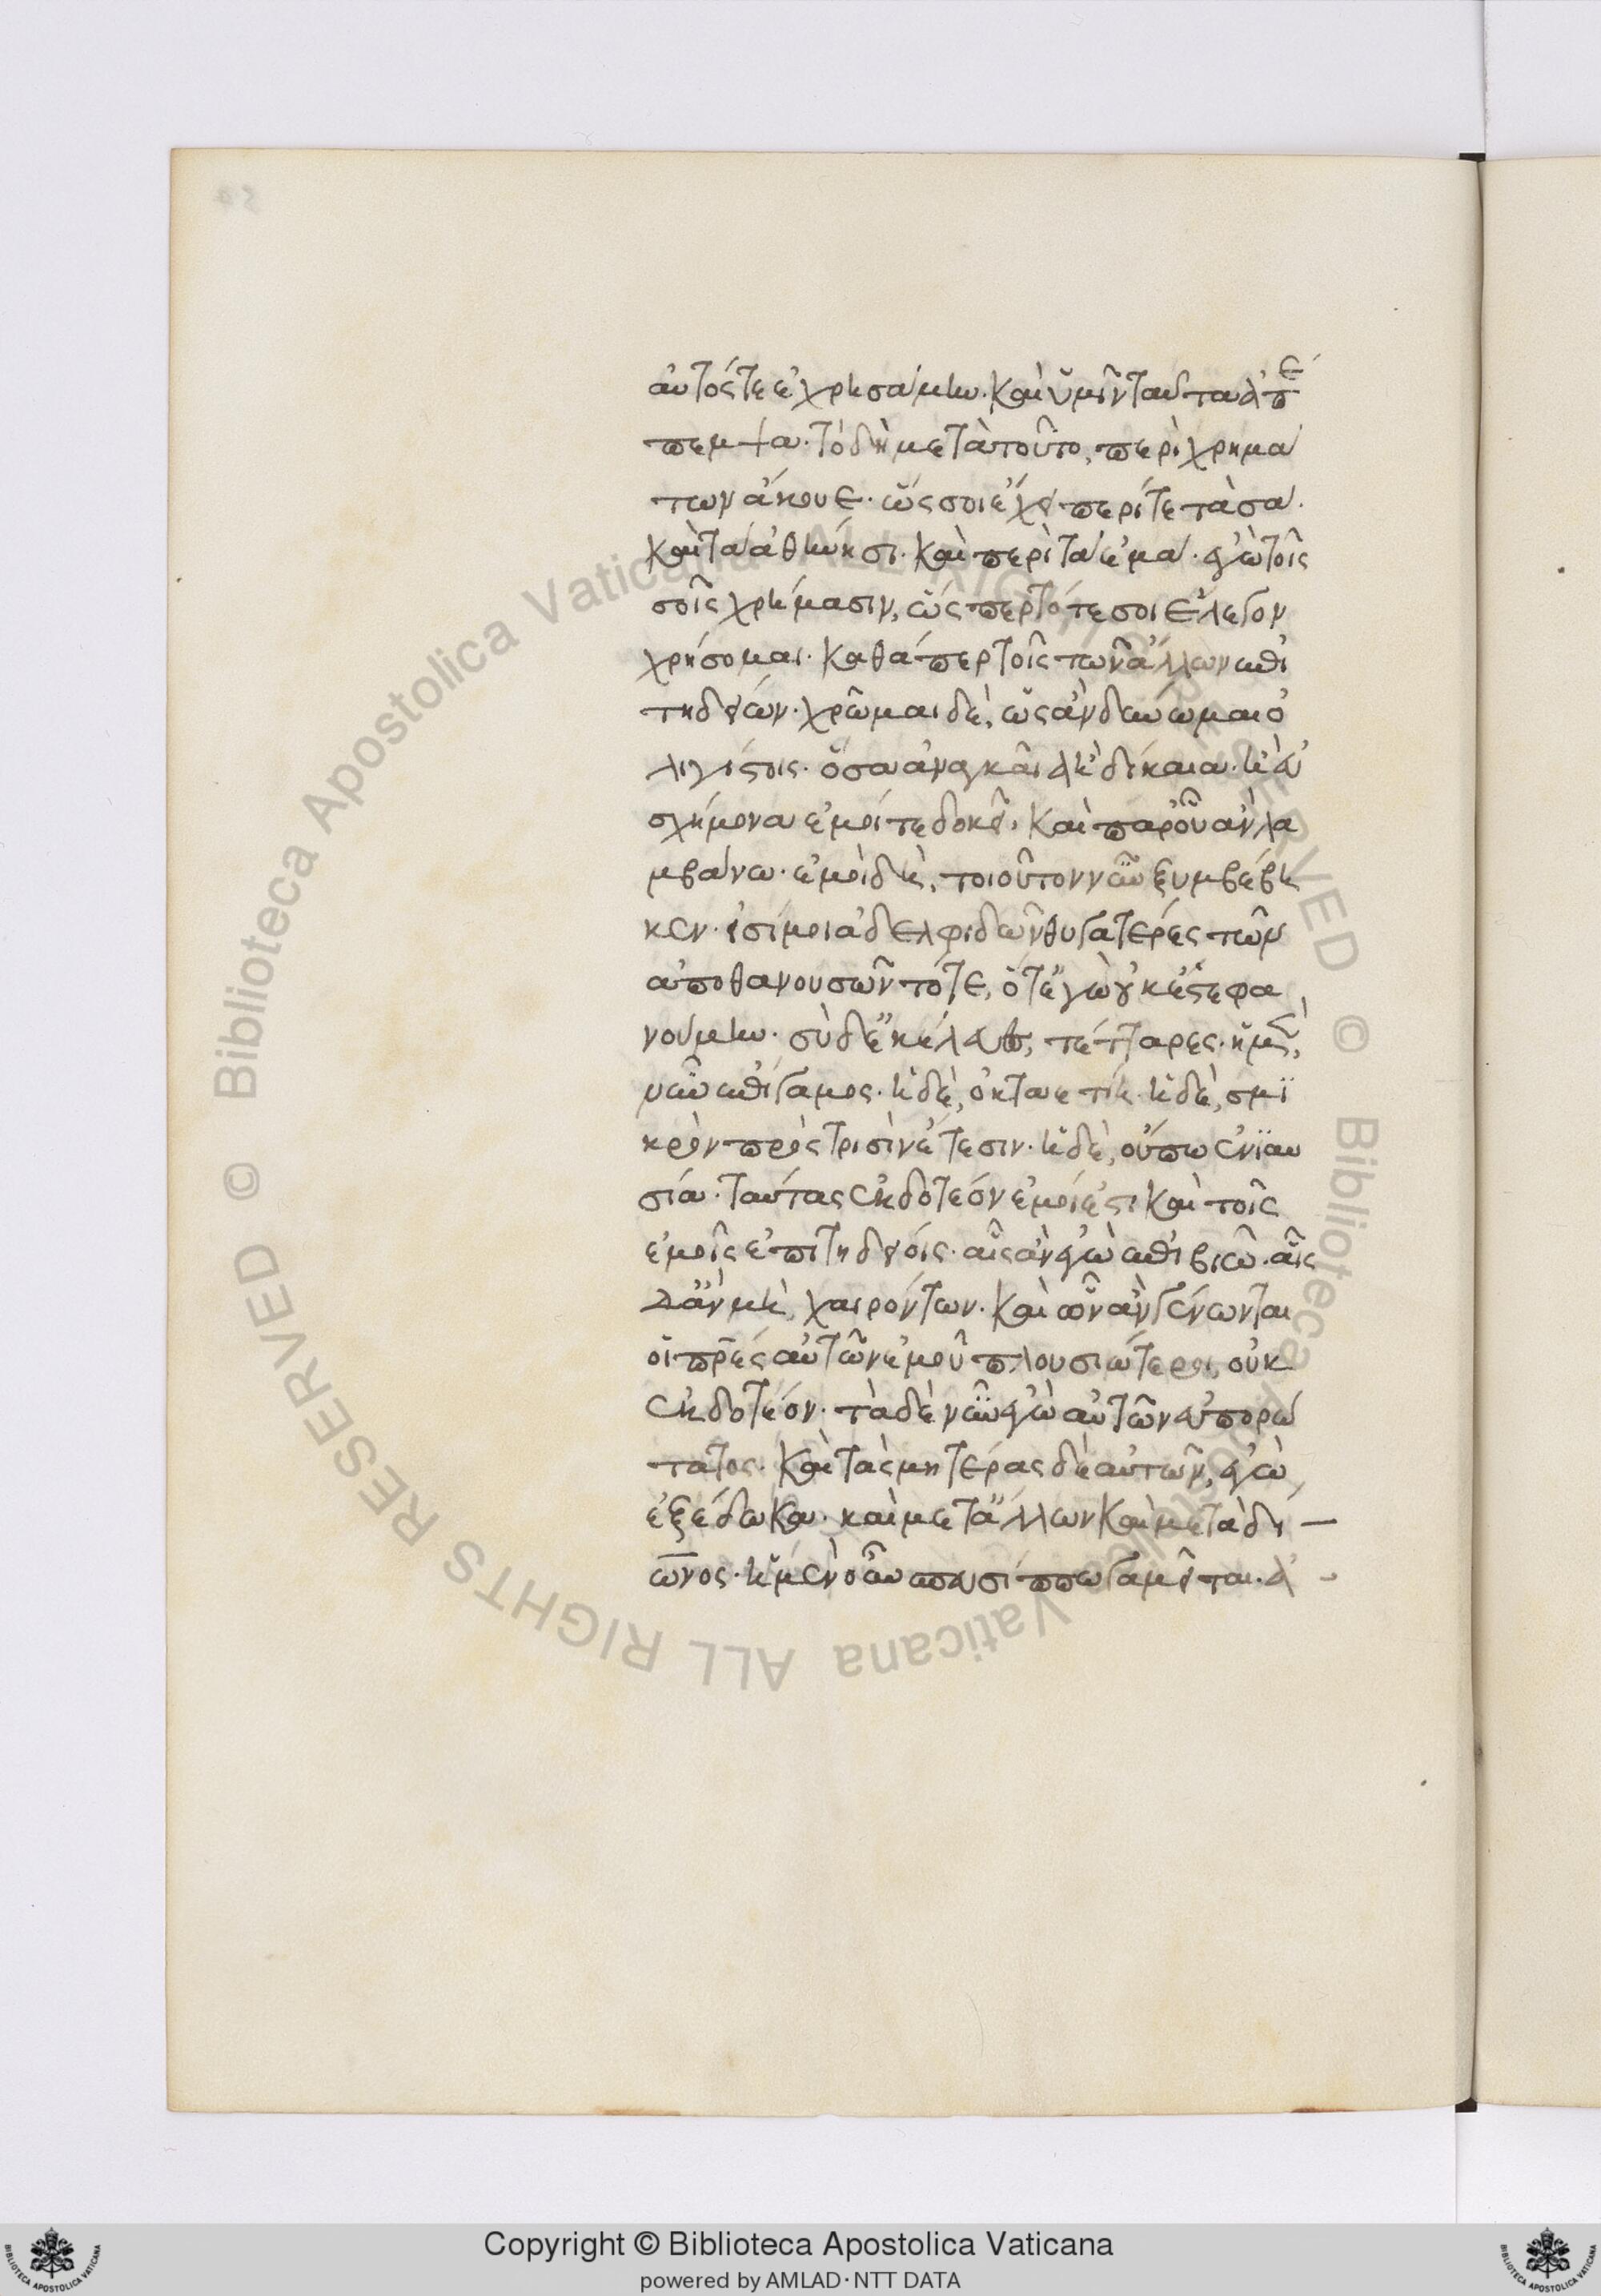 αὐτός τε ἐχρησάμην· καὶ ὑμῖν ταῦτα ἀπέ
πεμψα· τὸ δὴ μετὰ τοῦτο, περὶ χρημά
των ἄκουε· ὥς σοι ἔχει περί τε τὰ σὰ·
καὶ τὰ ἀθήνησι· καὶ περὶ τὰ ἐμά· ἐγὼ τοῖς
σοῖς χρήμασιν, ὥσπερ τότε σοι ἔλεγον
χρήσομαι· καθάπερ τοῖς τῶν ἄλλων ἐπι
τηδείων· χρῶμαι δὲ, ὡς ἂν δύνωμαι ὀ
λιγίστοις· ὅσα ἀναγκαῖα ἢ δίκαια· ἢ εὐ
σχήμονα ἐμοί τε δοκεῖ, καὶ παρ' οὗ ἂν λα
μβάνω· ἐμοὶ δὴ, τοιοῦτον νῦν ξυμβέβη
κεν· εἰσί μοι ἀδελφιδῶν θυγατέρες τῶν
ἀποθανουσῶν τότε, ὅτ' ἐγὼ οὐκ ἐστεφα
νούμην· σὺ δ' ἐκέλευες, τέτταρες· ἡ μὲν,
νῦν ἐπίγαμος· ἡ δὲ, ὀκταετής· ἡ δὲ, σμι
κρὸν πρὸς τρισὶν ἔτεσιν· ἡ δὲ, οὔπω ἐνιαυ
σία· ταύτας ἐκδοτέον ἐμοί ἐστι καὶ τοῖς
ἐμοῖς ἐπιτηδείοις· αἷς ἂν ἐγὼ ἐπιβιῶ· αἷς
δ' ἂν μὴ, χαιρόντων· καὶ ὧν ἂν γένωνται
οἱ πρες αὐτῶν ἐμοῦ πλουσιώτεροι, οὐκ
ἐκδοτέον· τὰ δὲ νῦν ἐγὼ αὐτῶν εὐπορώ
τατος· καὶ τὰς μητέρας δὲ αὐτῶν, ἐγὼ
ἐξέδωκα· καὶ μετ' ἄλλων καὶ μετὰ δί
ωνος· ἡ μὲν οὖν σπευσίππῳ γαμεῖται·